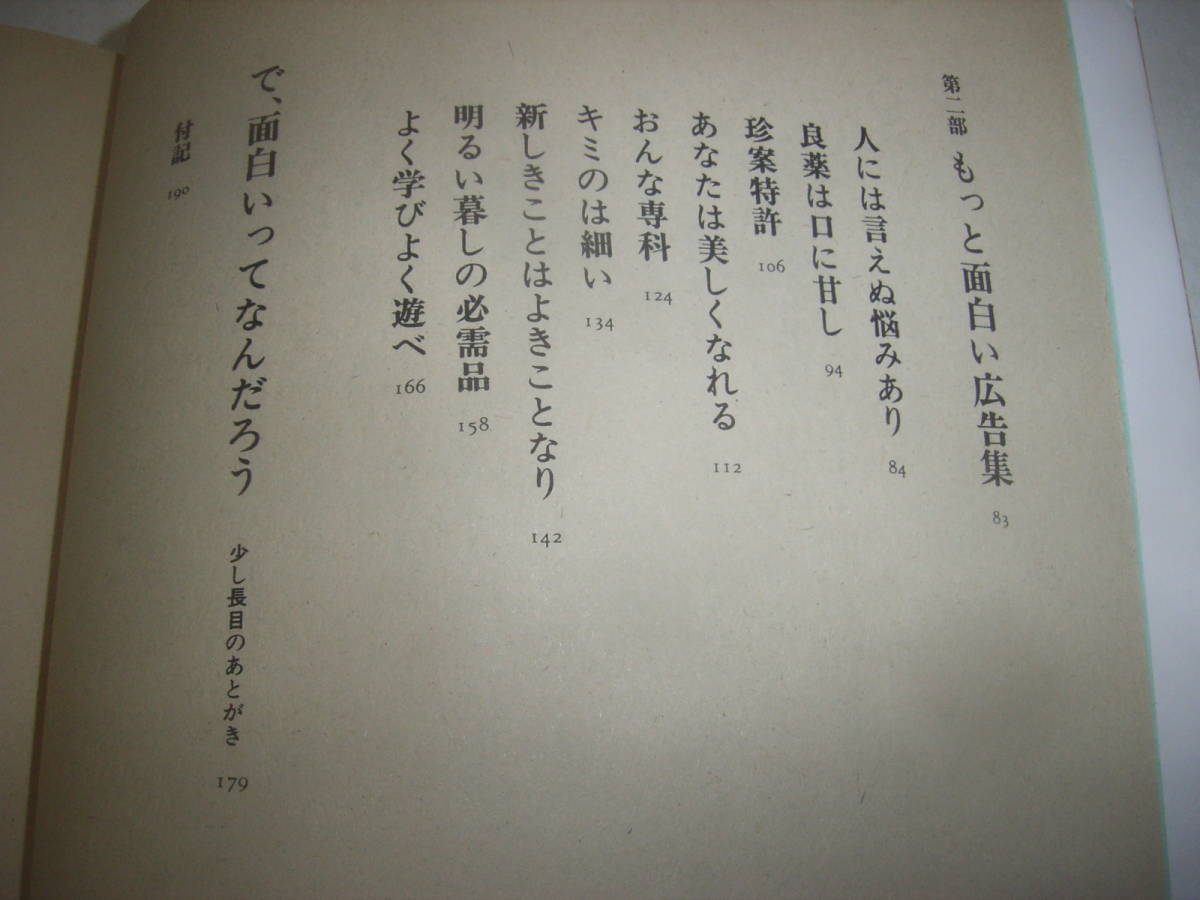 第二部 もっと面白い広告集 83
人には言えぬ悩みあり 84
良薬は口に甘し 94
珍案特許 106
あなたは美しくなれる 112
おんな専科 124
キミのは細い 134
新しきことはよきことなり 142
明るい暮しの必需品 158
よく学びよく遊べ 166
で、面白いってなんだろう 少し長目のあとがき 179
付記 190